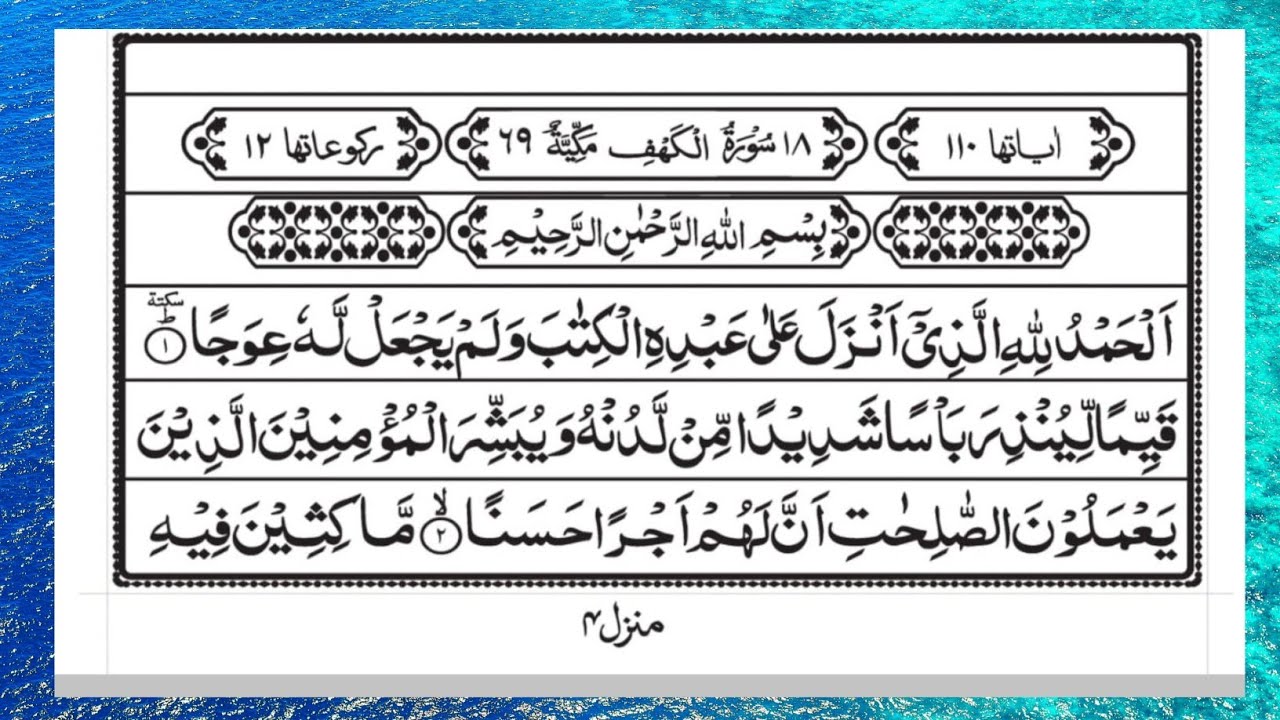 اٰیاتها ۱۱۰ ۱۸ سُوْرَةُ الْكَهْفِ مَكِّيَّةٌ ۶۹ ركوعاتها ۱۲
بِسْمِ اللّٰهِ الرَّحْمٰنِ الرَّحِيْمِ
اَلْحَمْدُ لِلّٰهِ الَّذِيْۤ اَنْزَلَ عَلٰى عَبْدِهِ الْكِتٰبَ وَلَمْ يَجْعَلْ لَّهٗ عِوَجًا ؕ سكتة ۱
قَيِّمًا لِّيُنْذِرَ بَاْسًا شَدِيْدًا مِّنْ لَّدُنْهُ وَيُبَشِّرَ الْمُؤْمِنِيْنَ الَّذِيْنَ
يَعْمَلُوْنَ الصّٰلِحٰتِ اَنَّ لَهُمْ اَجْرًا حَسَنًا ۙ ۲ مَّاكِثِيْنَ فِيْهِ
منزل ۴